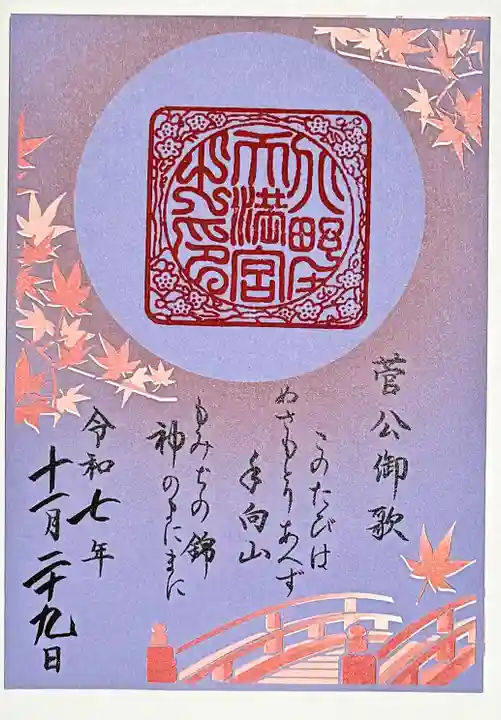 北野
天満宮
之印
菅公御歌
このたびは
ぬさもとりあへず
手向山
もみぢの錦
神のまにまに
令和七年
十一月二十九日